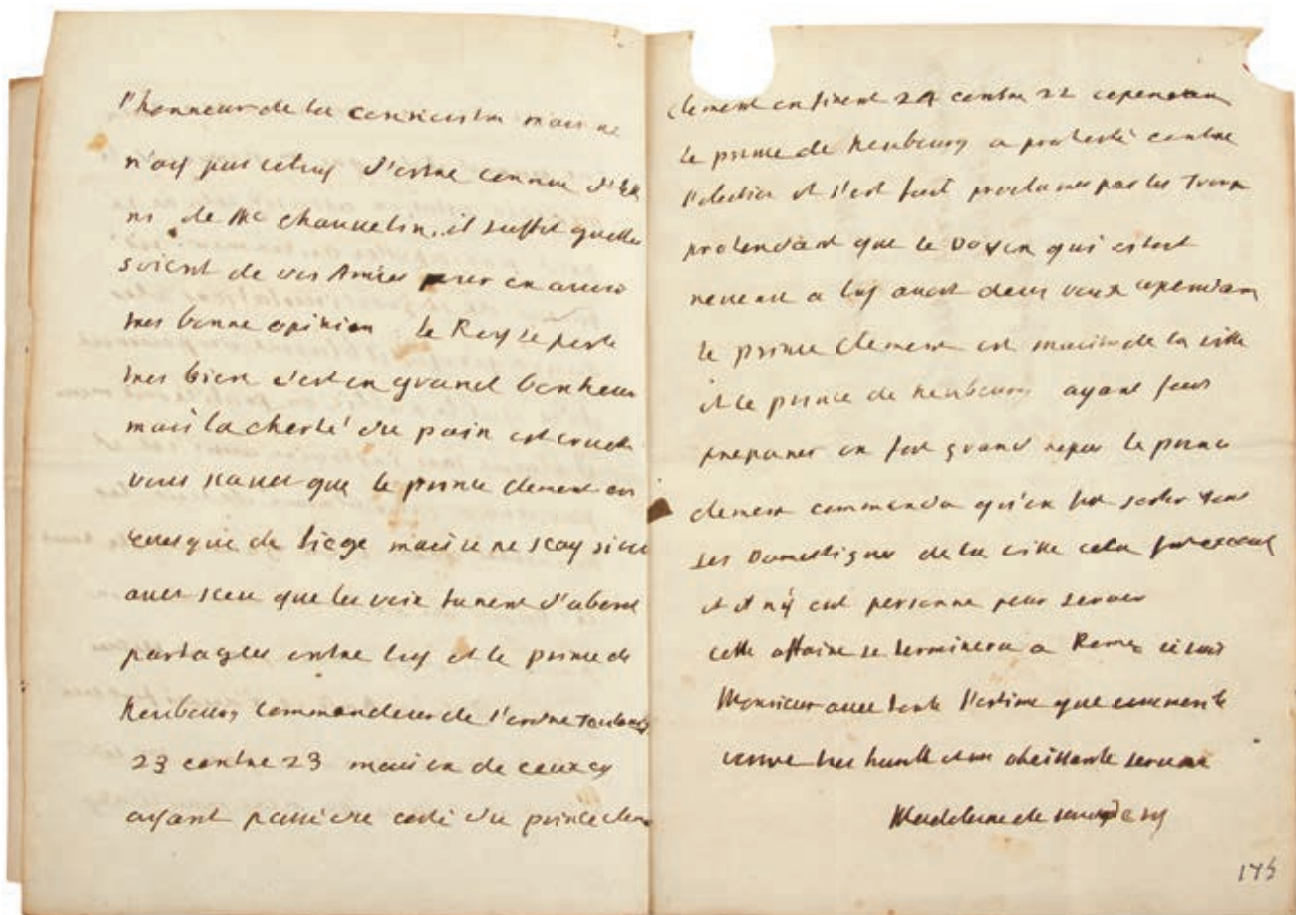 l'honneur de la connoistre mais ie
n'ay pas celuy d'estre connue d'
de Mr chauuelin, il suffit quelles
soient de vos Amies pour en auoir
tres bonne opinion le Roy se porte
tres bien c'est un grand bonheur
mais la cherté du pain est cruelle
vous scauez que le prince clement est
euesque de Liege mais ie ne scay si vous
auez sceu que les voix furent d'abord
partagées entre luy et le prince de
Neubourg commandeur de l'ordre Teutonique
23 contre 23 mais un de ceux cy
ayant passé du costé du prince clem
clement en firent 24 contre 22 cependant
le prince de Neubourg a protesté contre
l'election et s'est fait proclamer par les
pretendant que le Doyen qui estoit
reuenu a luy auoit deux voix cependant
le prince Clement est maistre de la ville
et le prince de Neubourg ayant fait
preparer un fort grand repas le prince
clement commanda qu'on fist sortir tous
ses Domestiques de la ville cela fut executé
et il n'y eut personne pour seruir
cette affaire se terminera a Rome ie suis
Monsieur auec toute l'estime que
vostre tres humble et tres obeissante seruante
Madeleine de scudery
175